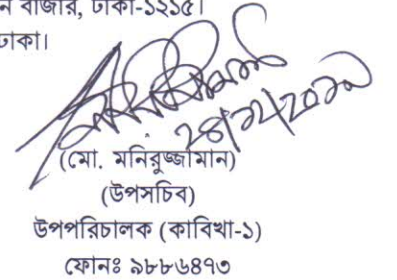 ন বাজার, ঢাকা-১২১৫।
ঢাকা।
(মো. মনিরুজ্জামান)
(উপসচিব)
উপপরিচালক (কাবিখা-১)
ফোনঃ ৯৮৮৬৪৭৩